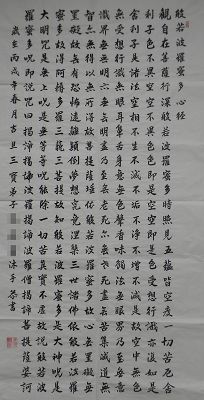 般若波羅蜜多心經
觀自在菩薩行深般若波羅蜜多時照見五蘊皆空度一切苦厄舍
利子色不異空空不異色色即是空空即是色受想行識亦復如是
舍利子是諸法空相不生不滅不垢不淨不增不減是故空中無色
無受想行識無眼耳鼻舌身意無色聲香味觸法無眼界乃至無意
識界無無明亦無無明盡乃至無老死亦無老死盡無苦集滅道無
智亦無得以無所得故菩提薩埵依般若波羅蜜多故心無罣礙無
罣礙故無有恐怖遠離顛倒夢想究竟涅槃三世諸佛依般若波羅
蜜多故得阿耨多羅三藐三菩提故知般若波羅蜜多是大神咒是
大明咒是無上咒是無等等咒能除一切苦真實不虛故說般若波
羅蜜多咒即說咒曰揭諦揭諦波羅揭諦波羅僧揭諦菩提薩婆訶
歲在丙戌年春月吉旦三寶弟子沐手恭書